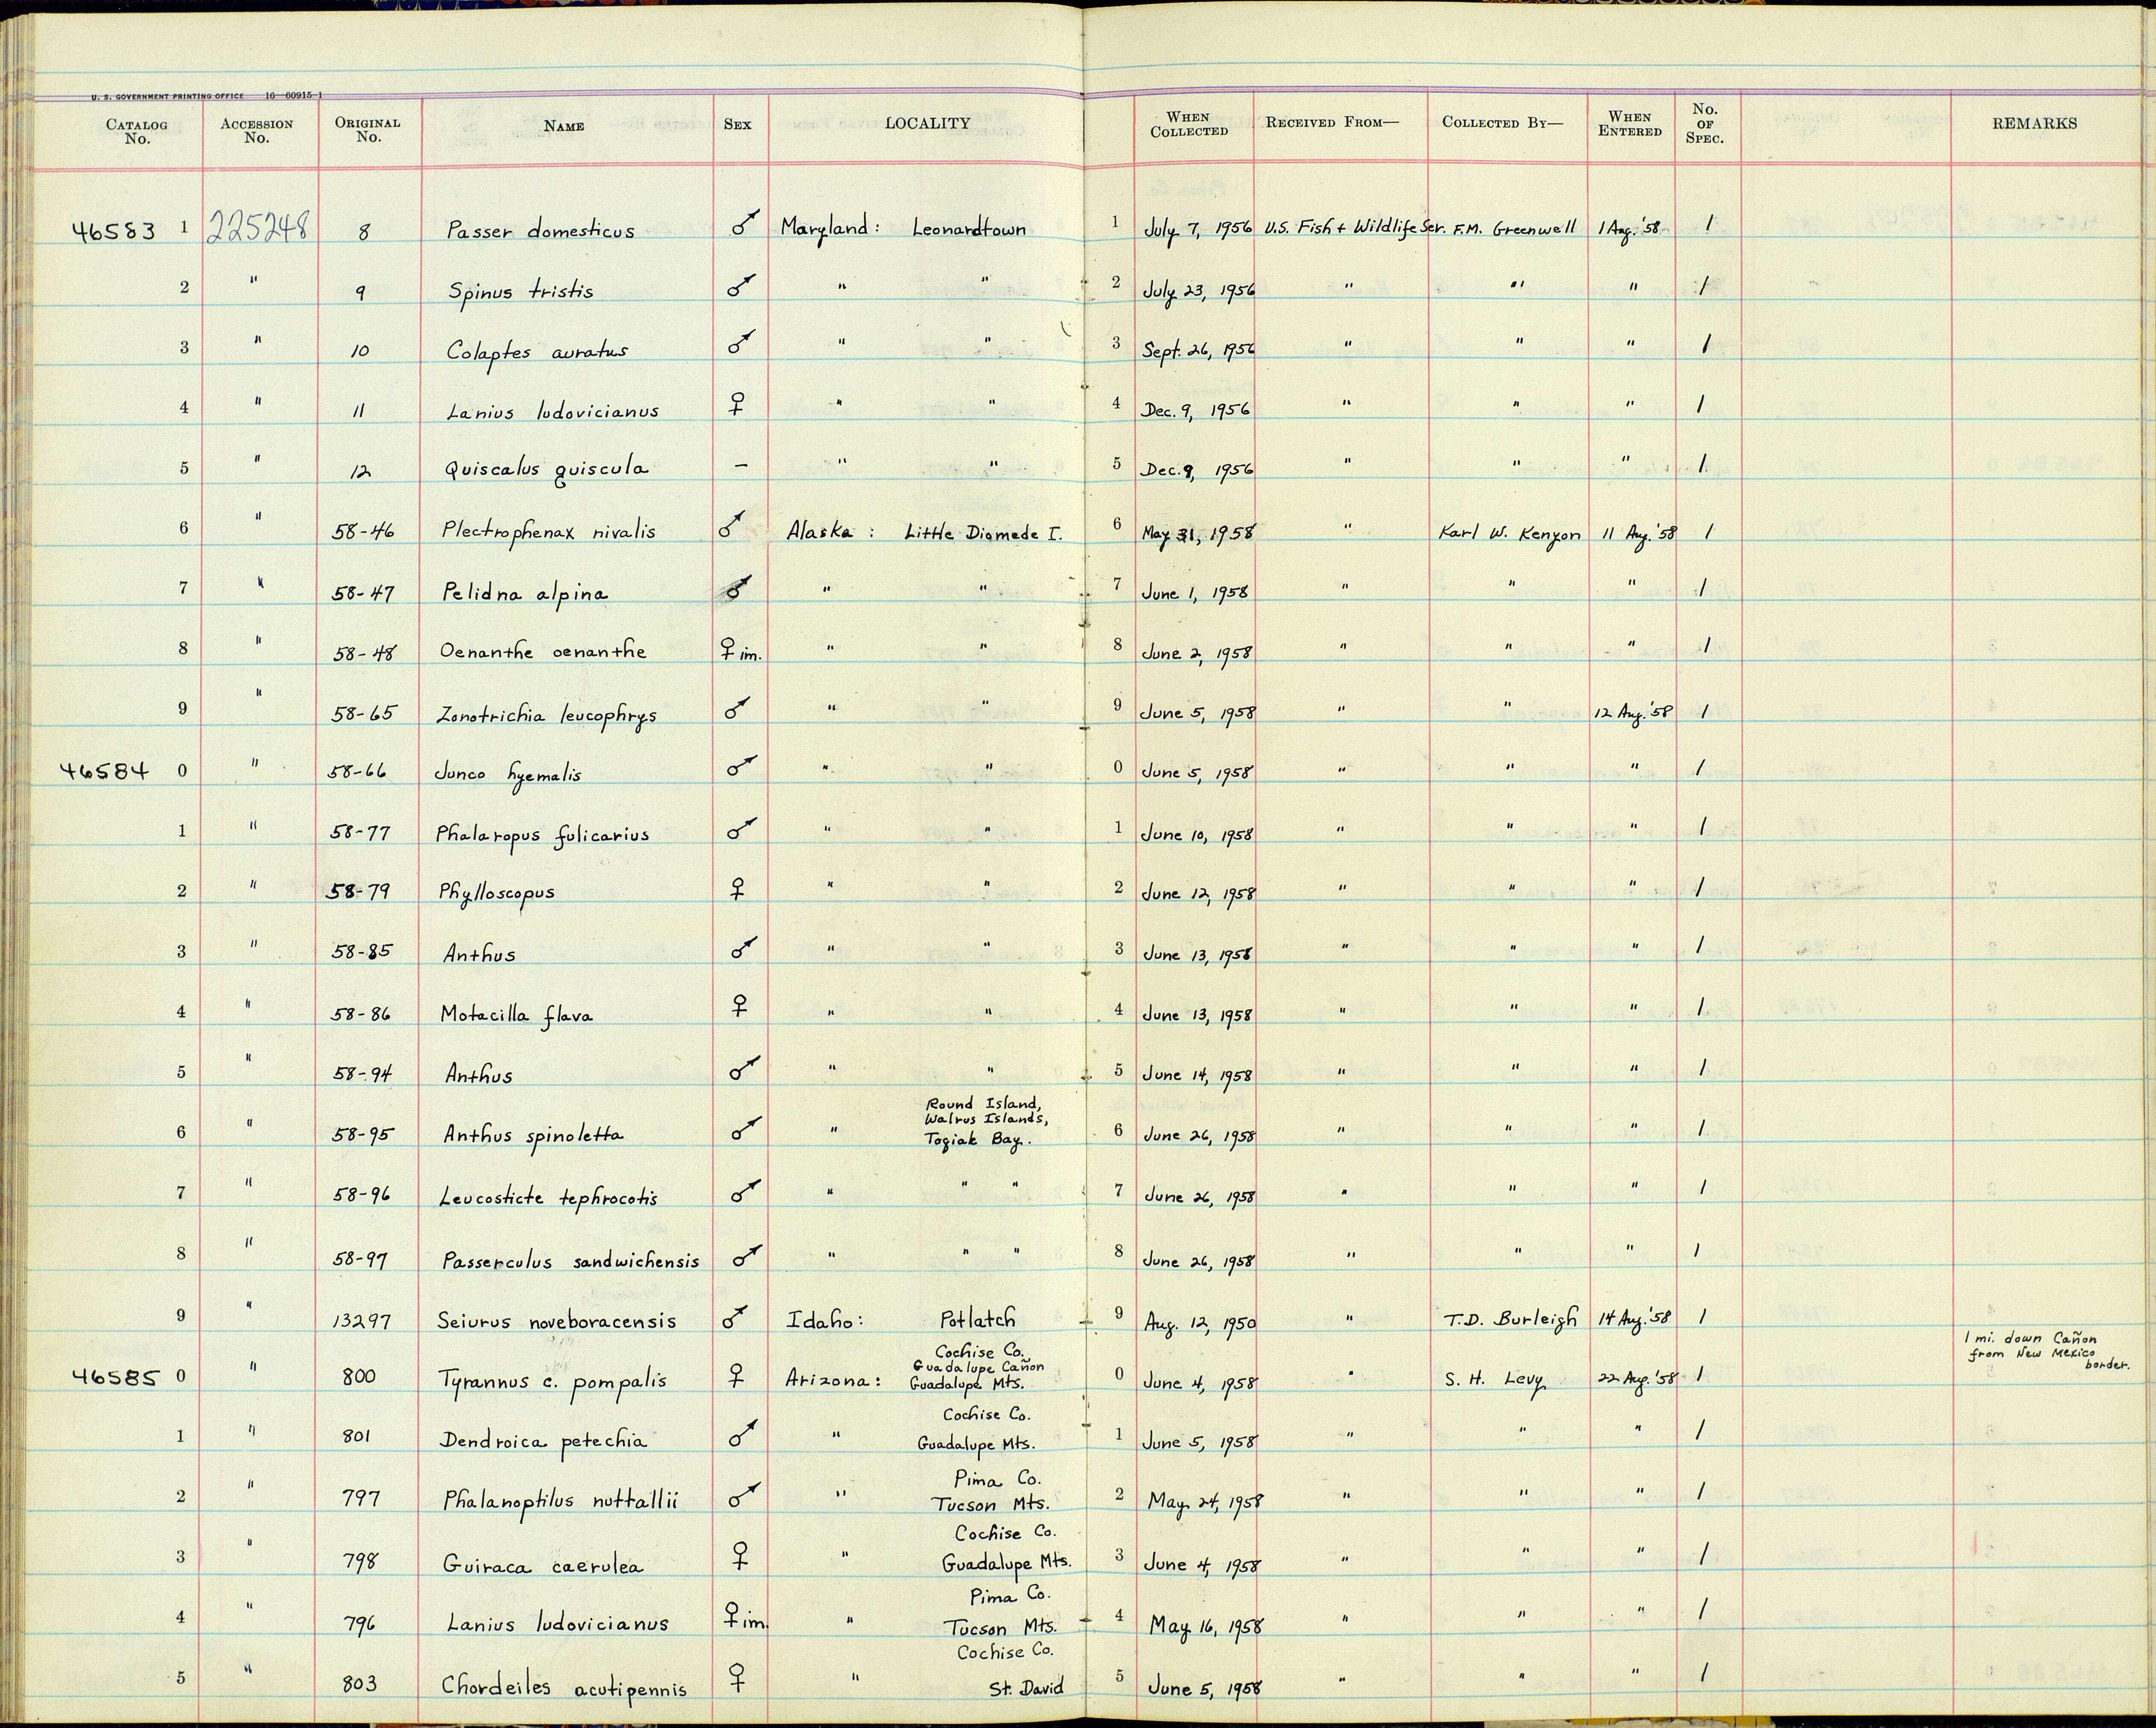 U. S. GOVERNMENT PRINTING OFFICE 16—60915-1
CATALOG No. ACCESSION No. ORIGINAL No. NAME SEX LOCALITY WHEN COLLECTED RECEIVED FROM— COLLECTED BY— WHEN ENTERED No. OF SPEC. REMARKS
46583 1 225248 8 Passer domesticus ♂ Maryland: Leonardtown 1 July 7, 1956 U.S. Fish + Wildlife Ser. F.M. Greenwell 1 Aug. '58 1
2 " 9 Spinus tristis ♂ " " 2 July 23, 1956 " " " 1
3 " 10 Colaptes auratus ♂ " " 3 Sept. 26, 1956 " " " 1
4 " 11 Lanius ludovicianus ♀ " " 4 Dec. 9, 1956 " " " 1
5 " 12 Quiscalus quiscula – " " 5 Dec. 9, 1956 " " " 1
6 " 58-46 Plectrophenax nivalis ♂ Alaska: Little Diomede I. 6 May 31, 1958 " Karl W. Kenyon 11 Aug. '58 1
7 " 58-47 Pelidna alpina ♂ " " 7 June 1, 1958 " " " 1
8 " 58-48 Oenanthe oenanthe ♀ im. " " 8 June 2, 1958 " " " 1
9 " 58-65 Zonotrichia leucophrys ♂ " " 9 June 5, 1958 " " 12 Aug. '58 1
46584 0 " 58-66 Junco hyemalis ♂ " " 0 June 5, 1958 " " " 1
1 " 58-77 Phalaropus fulicarius ♂ " " 1 June 10, 1958 " " " 1
2 " 58-79 Phylloscopus ♀ " " 2 June 12, 1958 " " " 1
3 " 58-85 Anthus ♂ " " 3 June 13, 1958 " " " 1
4 " 58-86 Motacilla flava ♀ " " 4 June 13, 1958 " " " 1
5 " 58-94 Anthus ♂ " " 5 June 14, 1958 " " " 1
Round Island,
Walrus Islands,
6 " 58-95 Anthus spinoletta ♂ " Togiak Bay. 6 June 26, 1958 " " " 1
7 " 58-96 Leucosticte tephrocotis ♂ " " " 7 June 26, 1958 " " " 1
8 " 58-97 Passerculus sandwichensis ♂ " " " 8 June 26, 1958 " " " 1
9 " 13297 Seiurus noveboracensis ♂ Idaho: Potlatch 9 Aug. 12, 1950 " T.D. Burleigh 14 Aug. '58 1
Cochise Co. 1 mi. down Cañon
Guadalupe Cañon from New Mexico
46585 0 " 800 Tyrannus c. pompalis ♀ Arizona: Guadalupe Mts. 0 June 4, 1958 " S. H. Levy 22 Aug. '58 1 border.
Cochise Co.
1 " 801 Dendroica petechia ♂ " Guadalupe Mts. 1 June 5, 1958 " " " 1
Pima Co.
2 " 797 Phalanoptilus nuttallii ♂ " Tucson Mts. 2 May 24, 1958 " " " 1
Cochise Co.
3 " 798 Guiraca caerulea ♀ " Guadalupe Mts. 3 June 4, 1958 " " " 1
Pima Co.
4 " 796 Lanius ludovicianus ♀ im. " Tucson Mts. 4 May 16, 1958 " " " 1
Cochise Co.
5 " 803 Chordeiles acutipennis ♀ " St. David 5 June 5, 1958 " " " 1